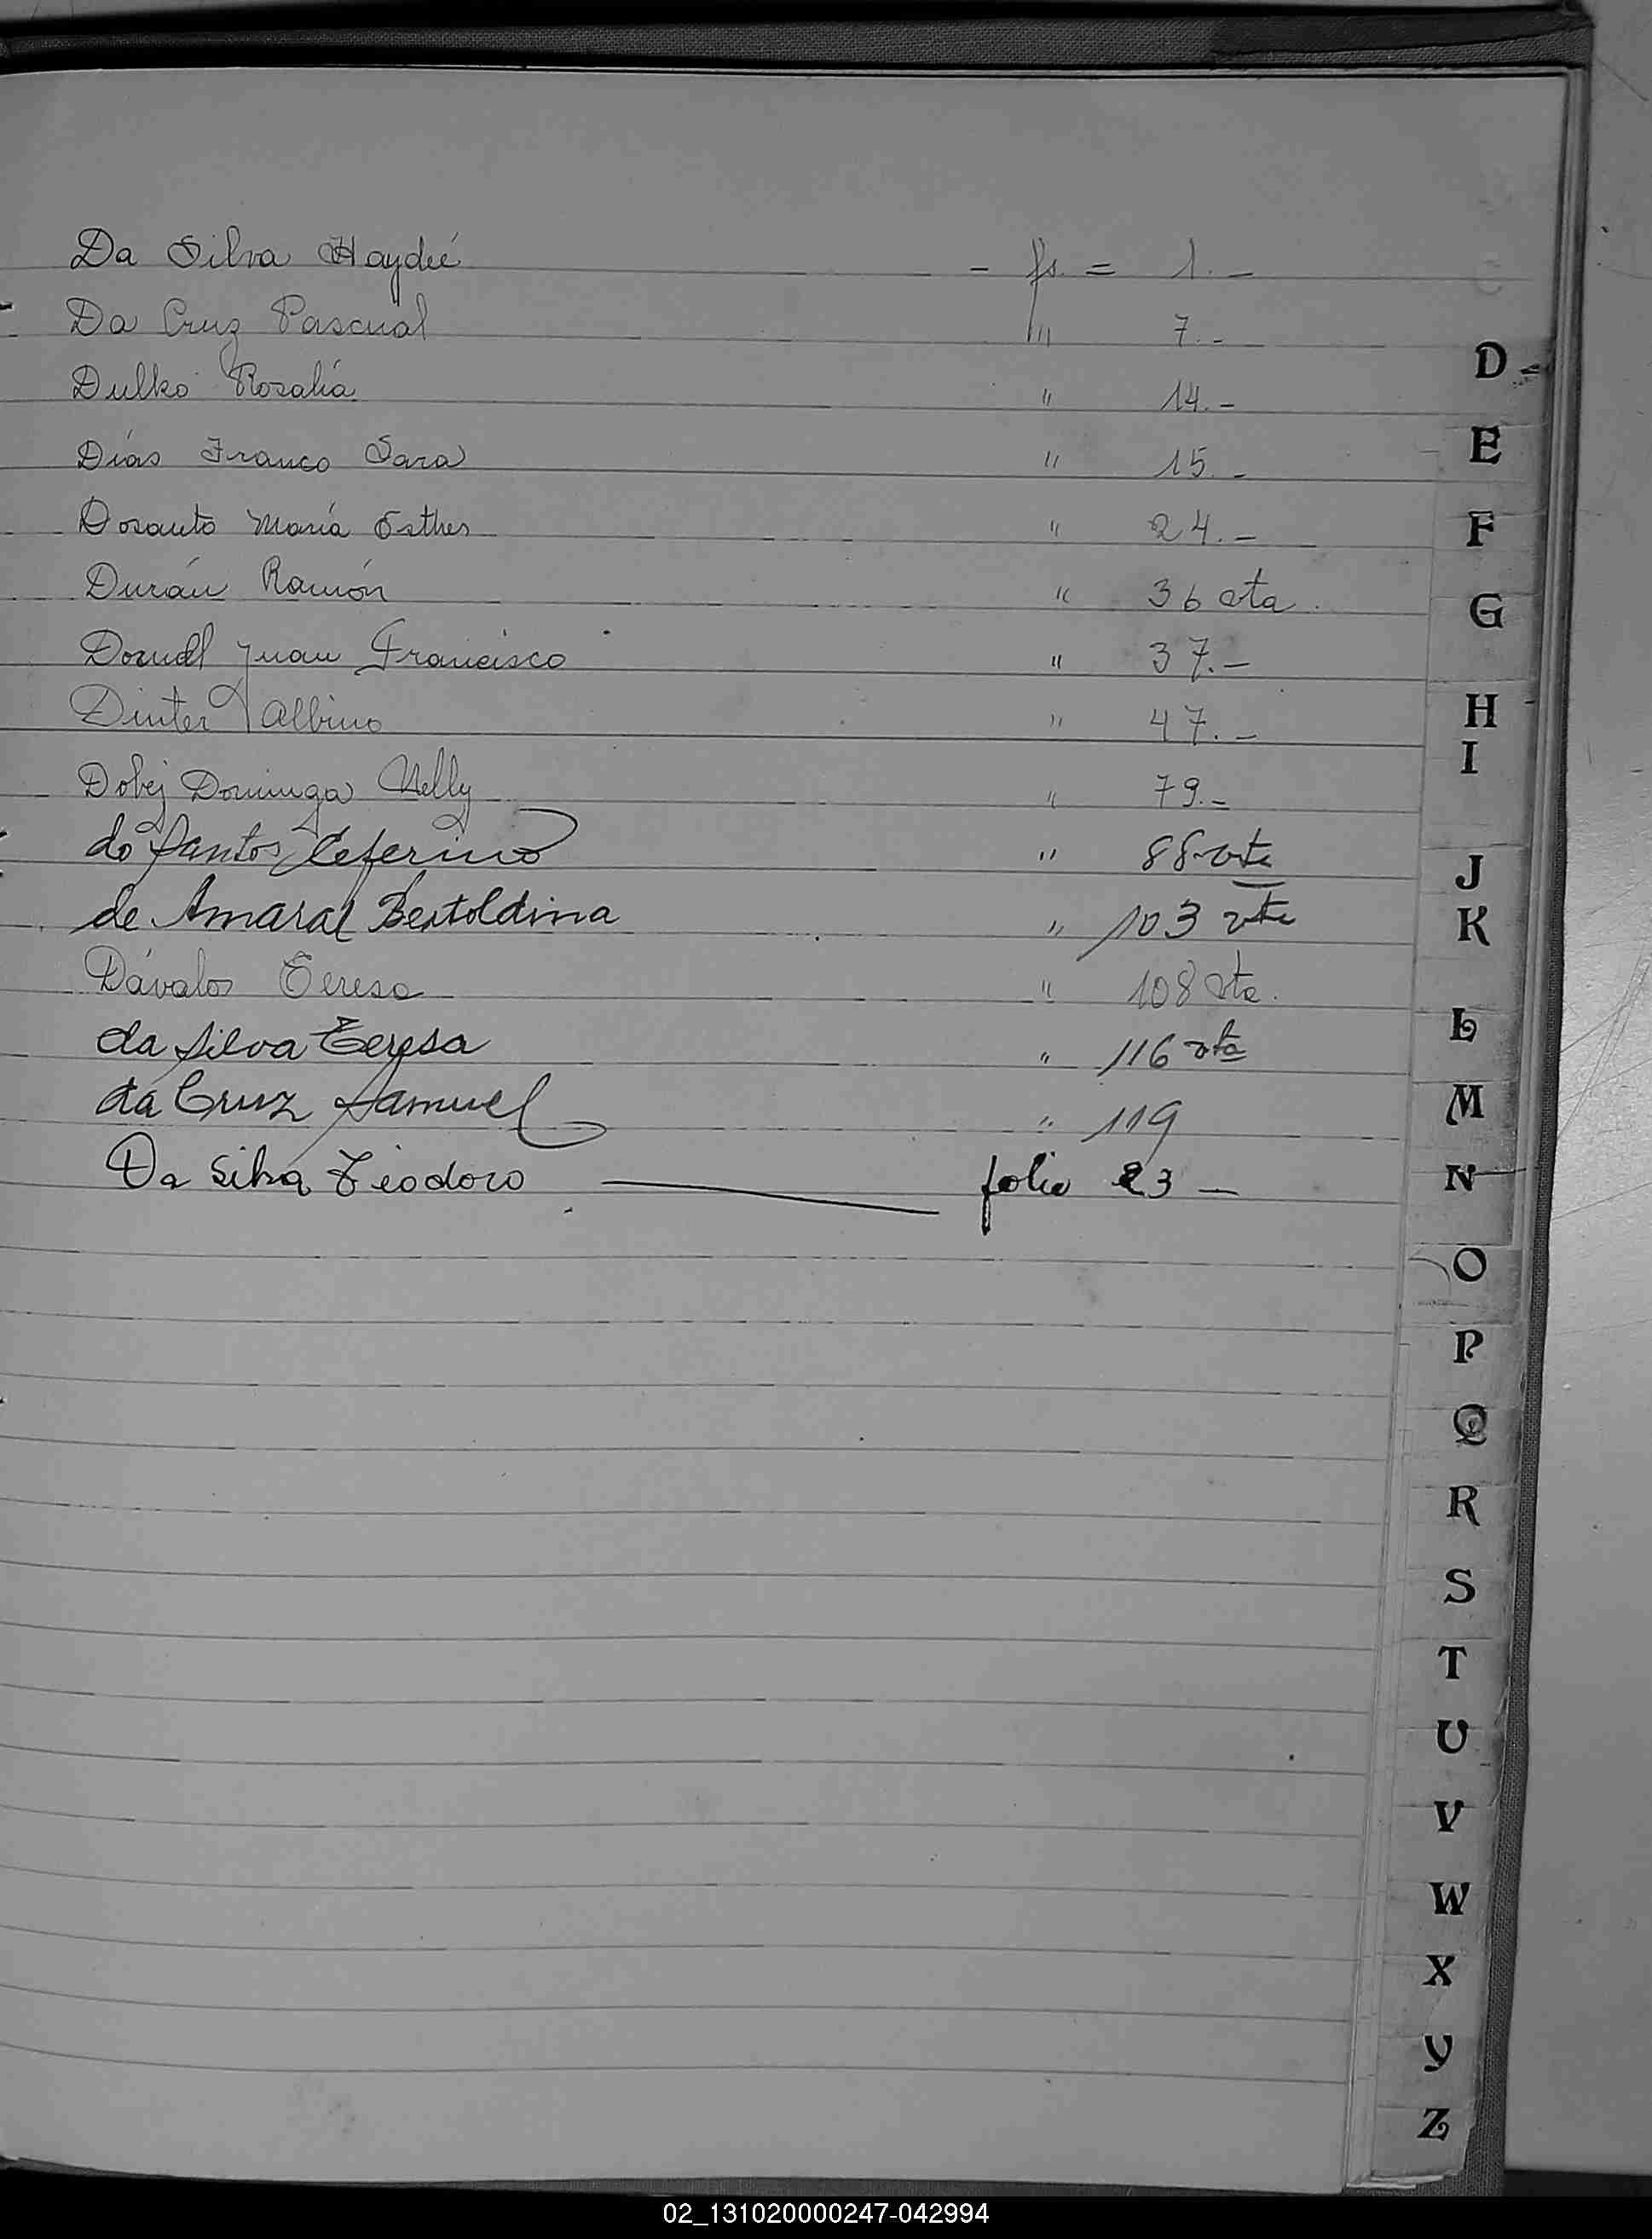 Da Silva Haydeé - fs. = 1.-
Da Cruz Pascual " 7.-
Dulko Rosalía " 14.-
Días Franco Sara " 15.-
Dosanto María Esther " 24.-
Durán Ramón " 36 vta.
Juan Francisco " 37.-
Dinter Albino " 47.-
Dobej Dominga Nelly " 79.-
do Santos Ceferino " 88 vta
de Amaral Bertoldina " 103 vta
Dávalos Teresa " 108 vta.
da Silva Teresa " 116 vta
da Cruz Samuel " 119
Da Silva Teodoro folio 23 -
D
E
F
G
H
I
J
K
L
M
N
O
P
Q
R
S
T
U
V
W
X
Y
Z
02_131020000247-042994